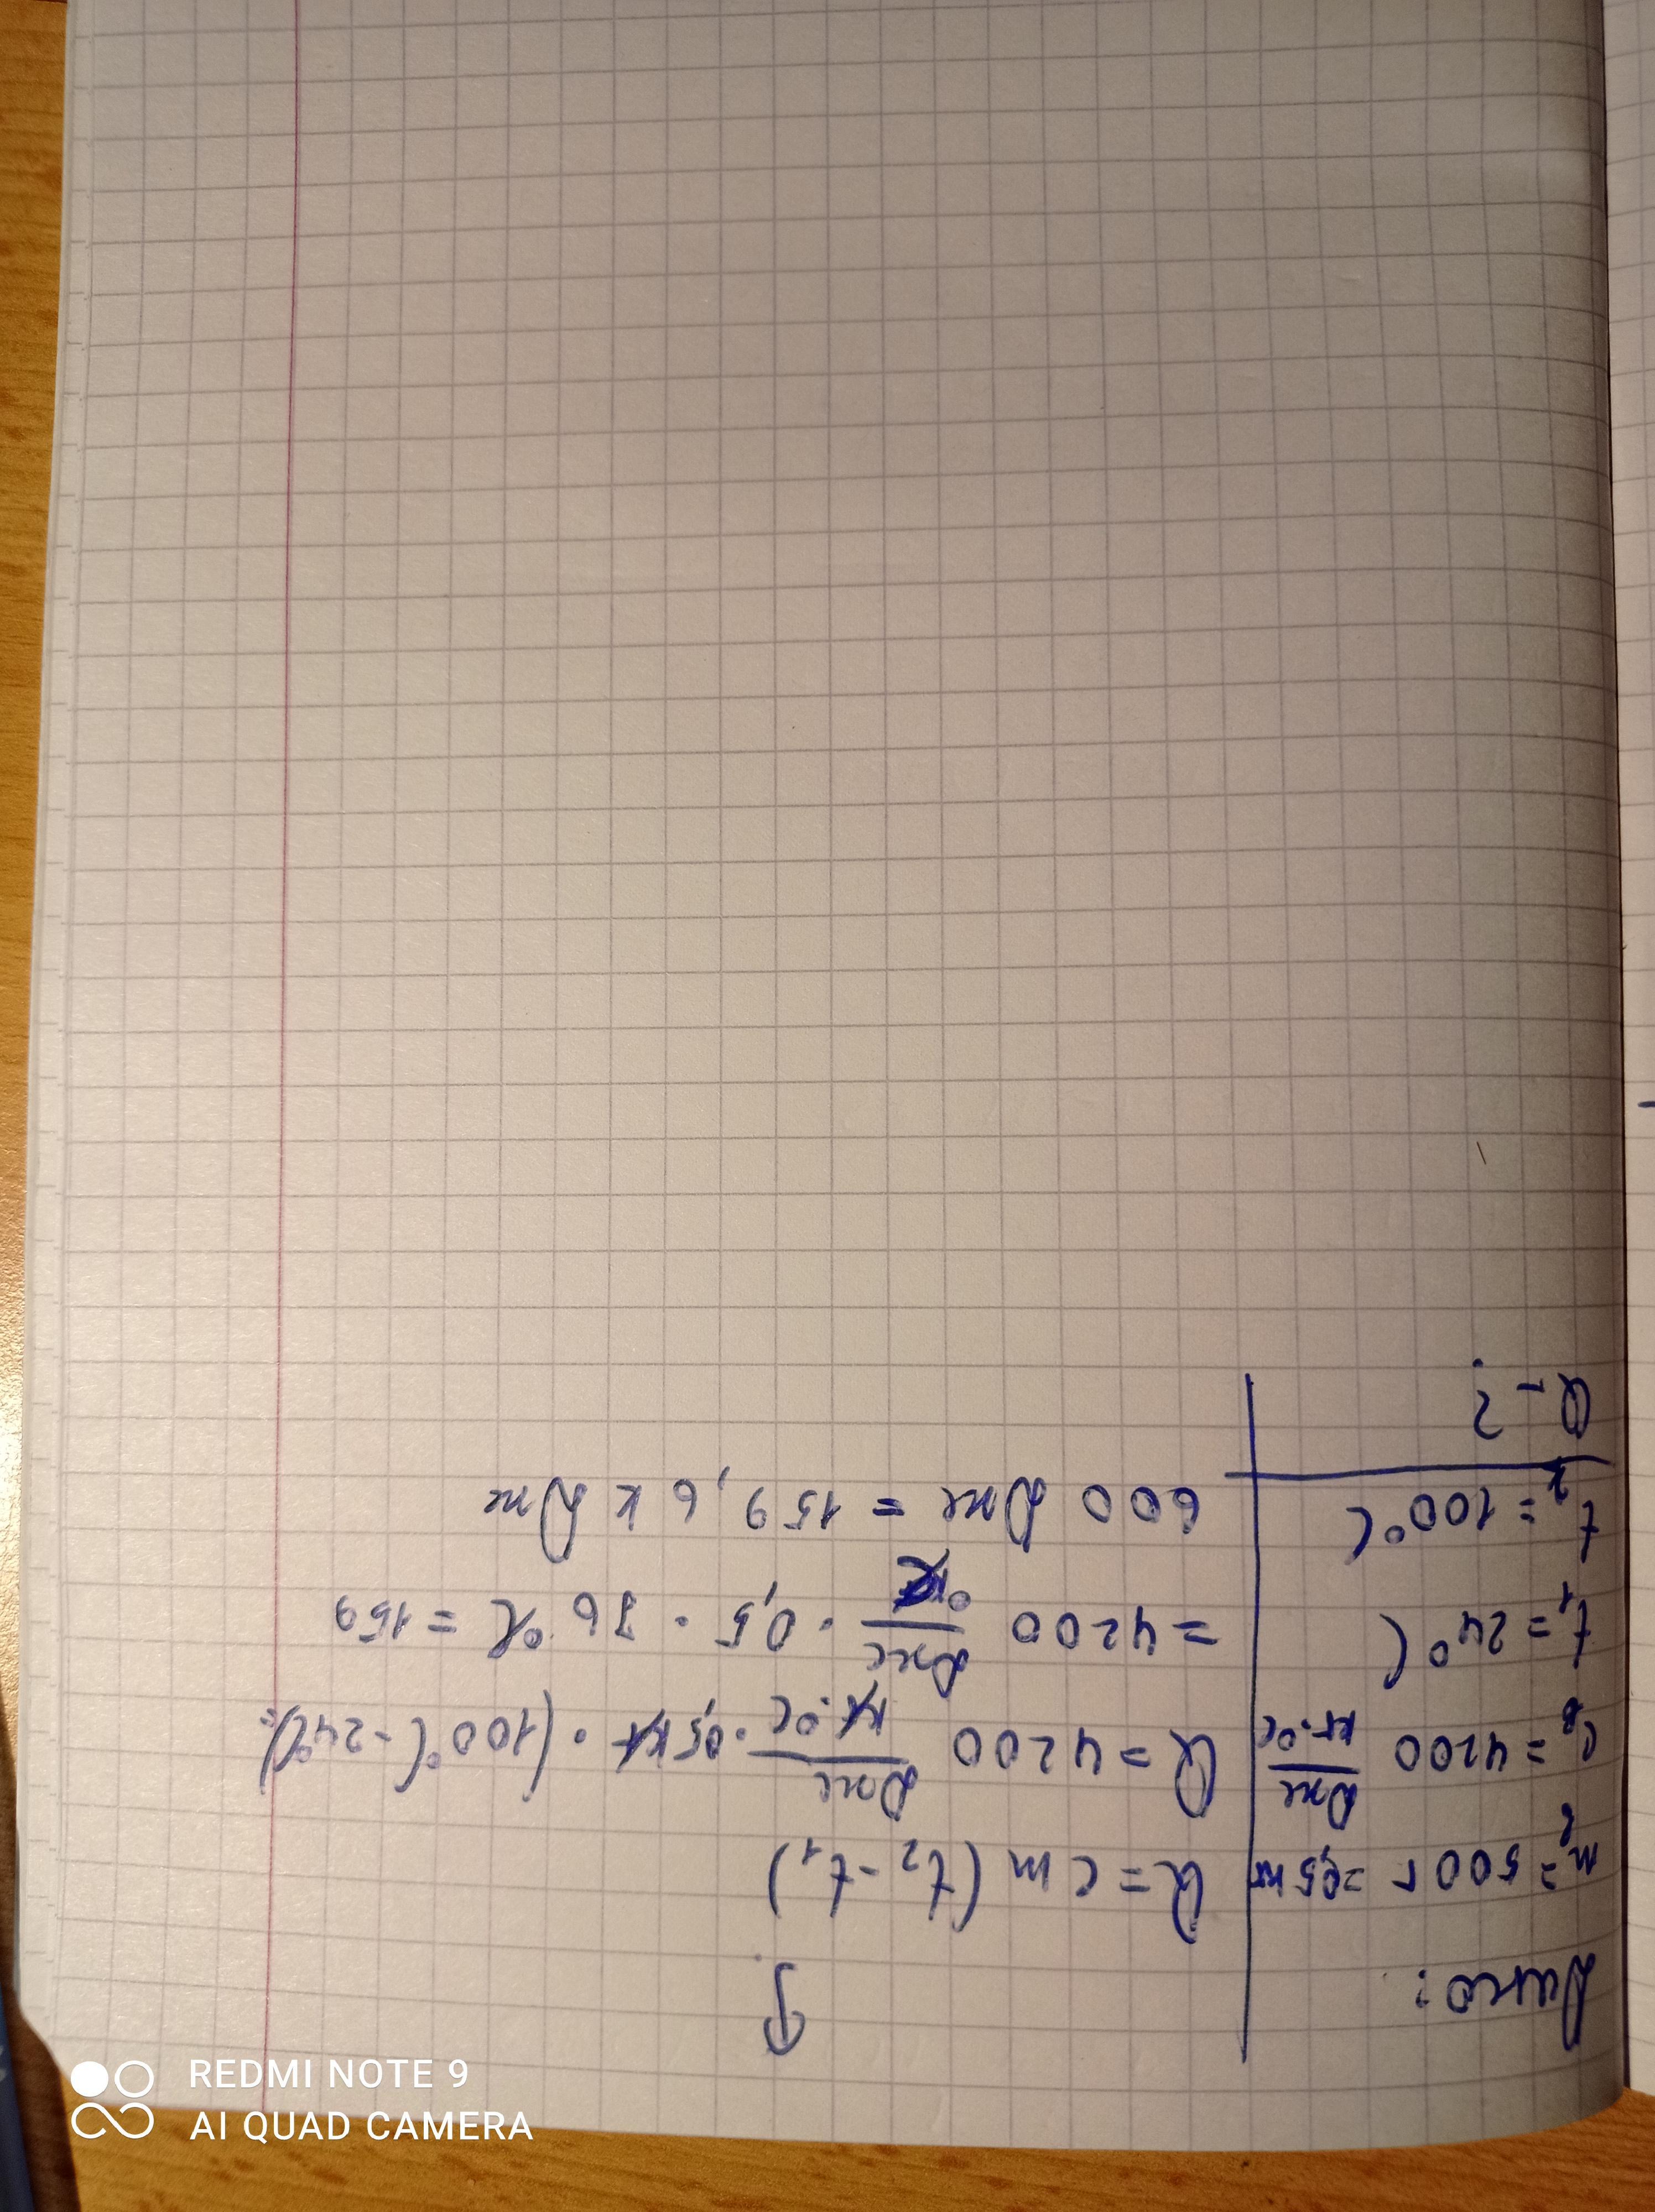 Дано:
m_в = 500 г = 0,5 кг
c_в = 4200 Дж/кг·°C
t₁ = 24°C
t₂ = 100°C
Q - ?
Q = cm (t₂ - t₁)
Q = 4200 Дж/кг·°C · 0,5 кг · (100°C - 24°C) =
= 4200 Дж/°C · 0,5 · 76 °C = 159
600 Дж = 159,6 к Дж
REDMI NOTE 9
AI QUAD CAMERA